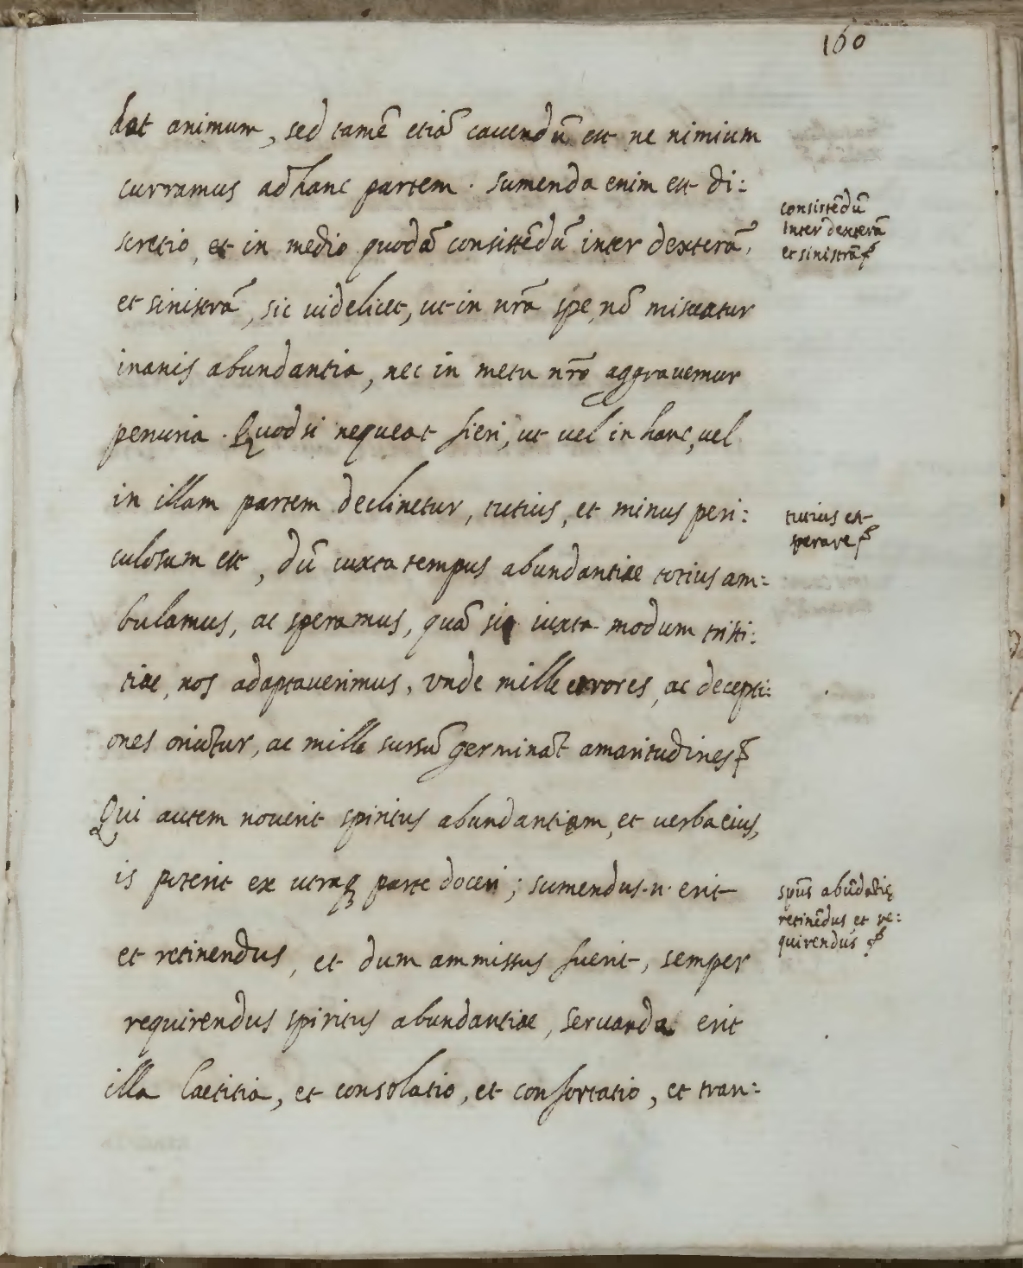 160
dat animum, sed tamē etiā cauendū est ne nimium
curramus ad hanc partem. sumenda enim est di:
scretio, et in medio quodā consistēdū inter dexterā,
consistēdū
inter dexterā
et sinistrā
et sinistrā, sic uidelicet, ut in nrā spe, nō misceatur
inanis abundantia, nec in metu nrō aggrauemur
penuria. Quod si nequeat fieri, ut uel in hanc, uel
in illam partem declinetur, tutius, et minus peri:
tutius est
sperare
culosum est, dū iuxta tempus abundantiae totius am:
bulamus, ac speramus, quā si iuxta modum tristi:
tiae, nos adaptauerimus, vnde mille errores, ac decepti:
ones oriūtur, ac mille sursū germināt amaritudines
Qui autem nouerit spiritus abundantiam, et uerba eius,
is poterit ex utraq parte doceri; sumendus .n. erit
spūs abūdātię
retinēdus, et re:
quirendus
et retinendus, et dum ammissus fuerit, semper
requirendus spiritus abundantiae, seruanda erit
illa laetitia, et consolatio, et confortatio, et tran: